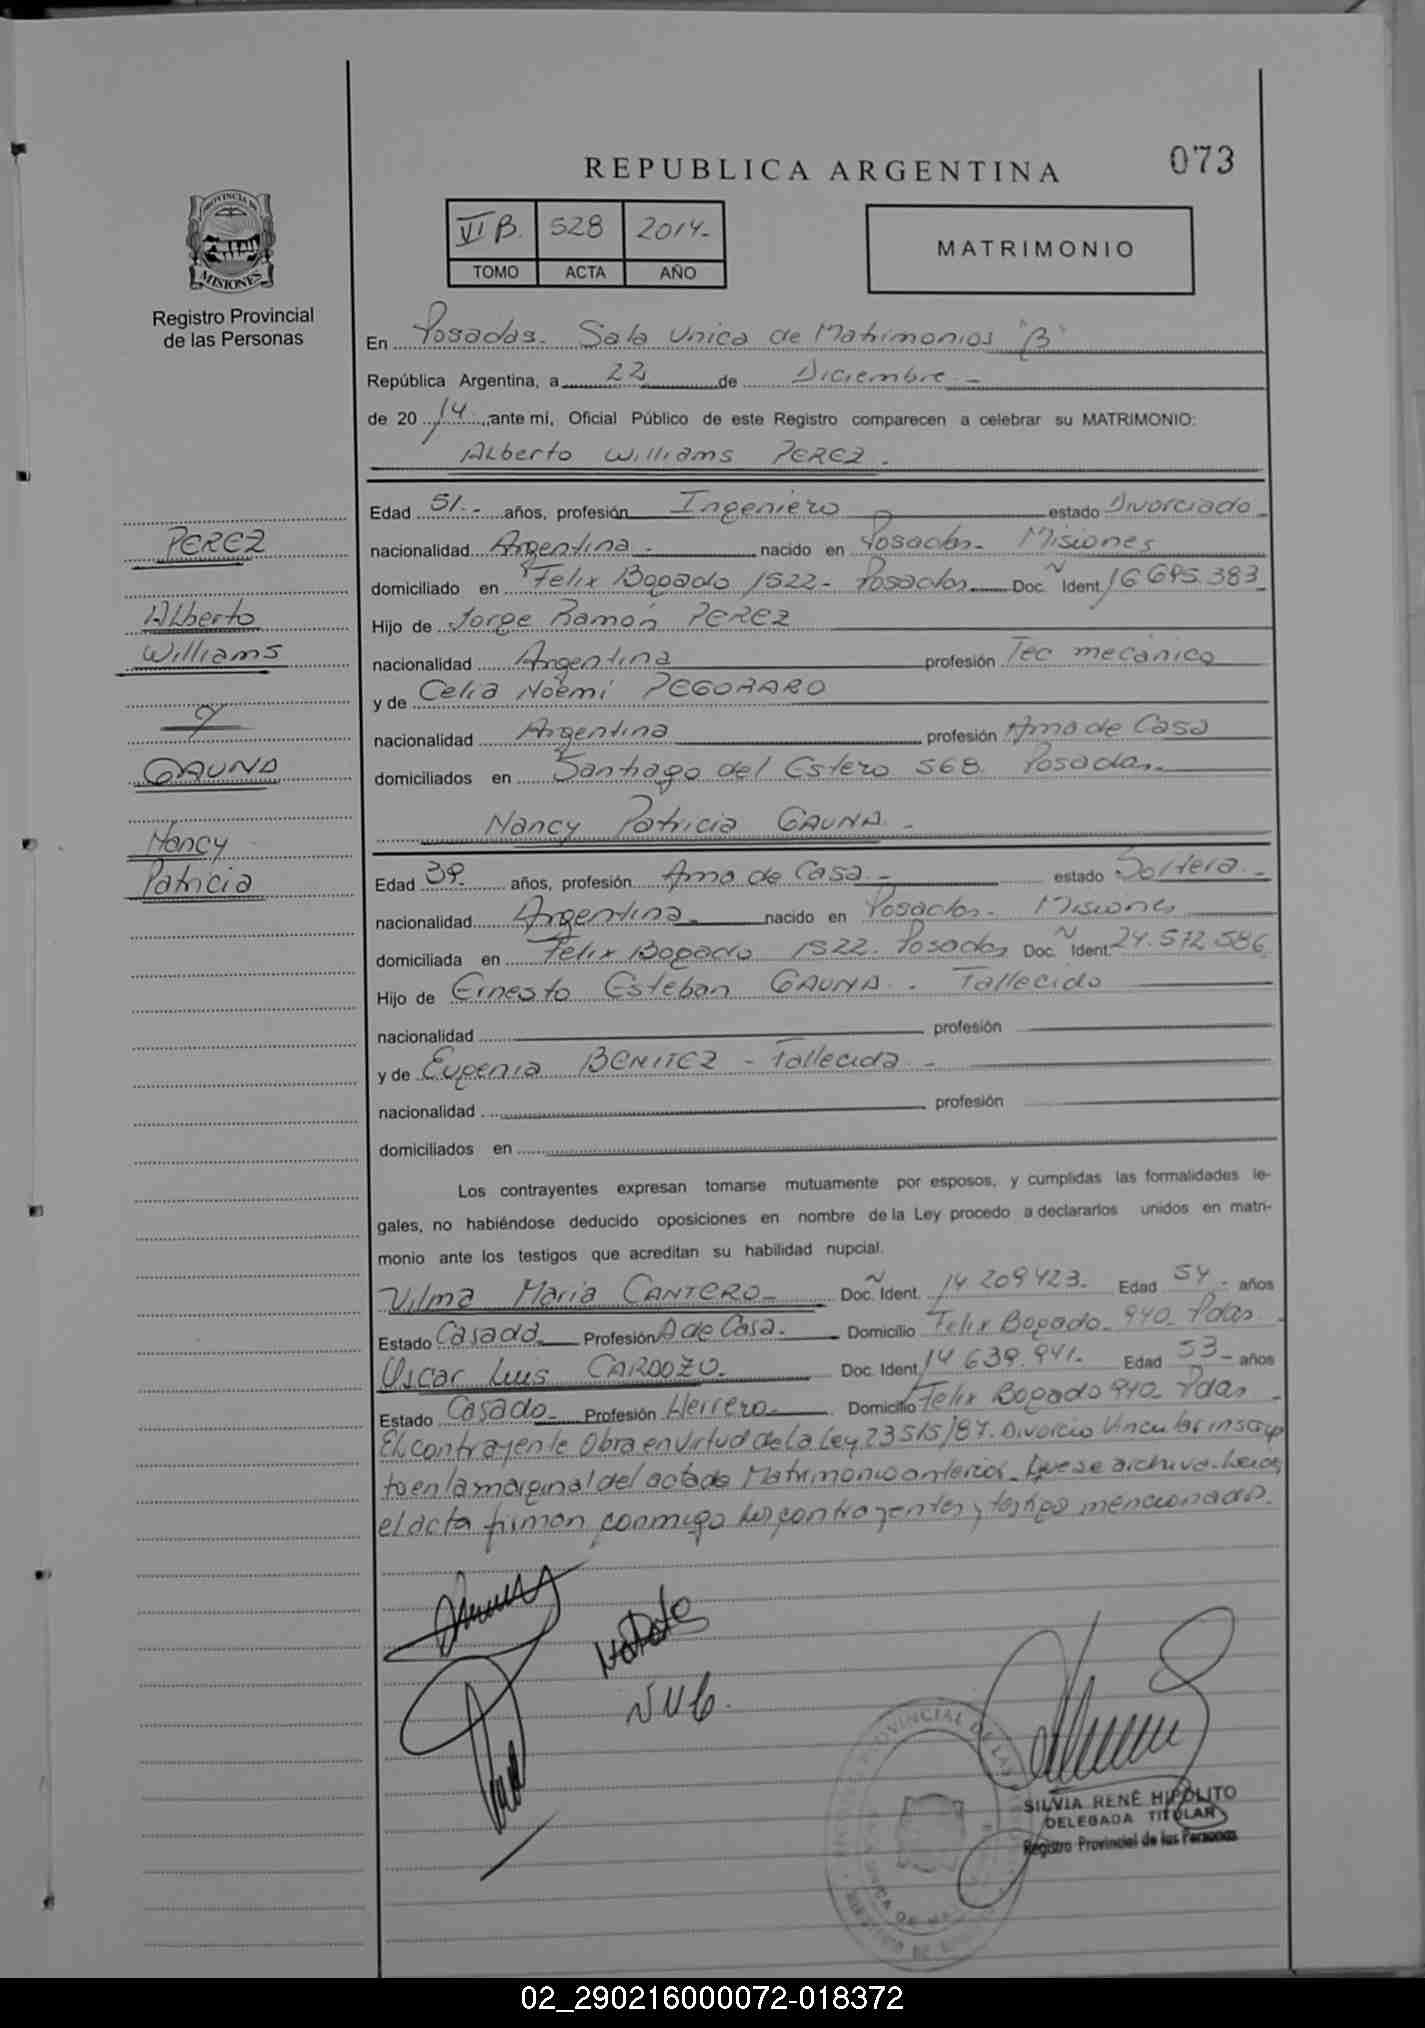 073
REPUBLICA ARGENTINA
VI B. 528 2014-
TOMO ACTA AÑO
MATRIMONIO
PROVINCIA DE
MISIONES
Registro Provincial
de las Personas
En Posadas. Sala Unica de Matrimonios "B"
República Argentina, a 22 de Diciembre -
de 2014, ante mí, Oficial Público de este Registro comparecen a celebrar su MATRIMONIO:
Alberto Williams PEREZ.
Edad 51.- años, profesión Ingeniero estado Divorciado
nacionalidad Argentina - nacido en Posadas - Misiones
domiciliado en Felix Bogado 1522 - Posadas Doc. Ident. 16.695.383
Hijo de Jorge Ramón PEREZ
nacionalidad Argentina profesión Tec mecánico
y de Celia Noemi PEGORARO
nacionalidad Argentina profesión Ama de Casa
domiciliados en Santiago del Estero 568. Posadas.
Nancy Patricia GAUNA. -
Edad 39. años, profesión Ama de Casa - estado Soltera. -
nacionalidad Argentina. nacido en Posadas - Misiones
domiciliada en Felix Bogado 1522. Posadas Doc. Ident. 24.572.586
Hijo de Ernesto Esteban GAUNA. - Fallecido
nacionalidad profesión
y de Eugenia BENITEZ - Fallecida. -
nacionalidad profesión
domiciliados en
Los contrayentes expresan tomarse mutuamente por esposos, y cumplidas las formalidades le-
gales, no habiéndose deducido oposiciones en nombre de la Ley procedo a declararlos unidos en matri-
monio ante los testigos que acreditan su habilidad nupcial.
Vilma Maria CANTERO - Doc. Ident. 14 209 423. Edad 54 - años
Estado Casada Profesión A de Casa. Domicilio Felix Bogado - 940 Pdas
Oscar Luis CARDOZO. Doc. Ident. 14 639.941. Edad 53 - años
Estado Casado Profesión Herrero Domicilio Felix Bogado 940 Pdas
El contrayente Obra en virtud de la Ley 23515/87. Divorcio Vincular inscrip
to en la marginal del acta de Matrimonio anterior. Que se archiva.
el acta firman conmigo los contrayentes y testigos mencionados.
PEREZ
Alberto
Williams
y
GAUNA
Nancy
Patricia
SILVIA RENÉ HIPÓLITO
DELEGADA TITULAR
Registro Provincial de las Personas
02_290216000072-018372